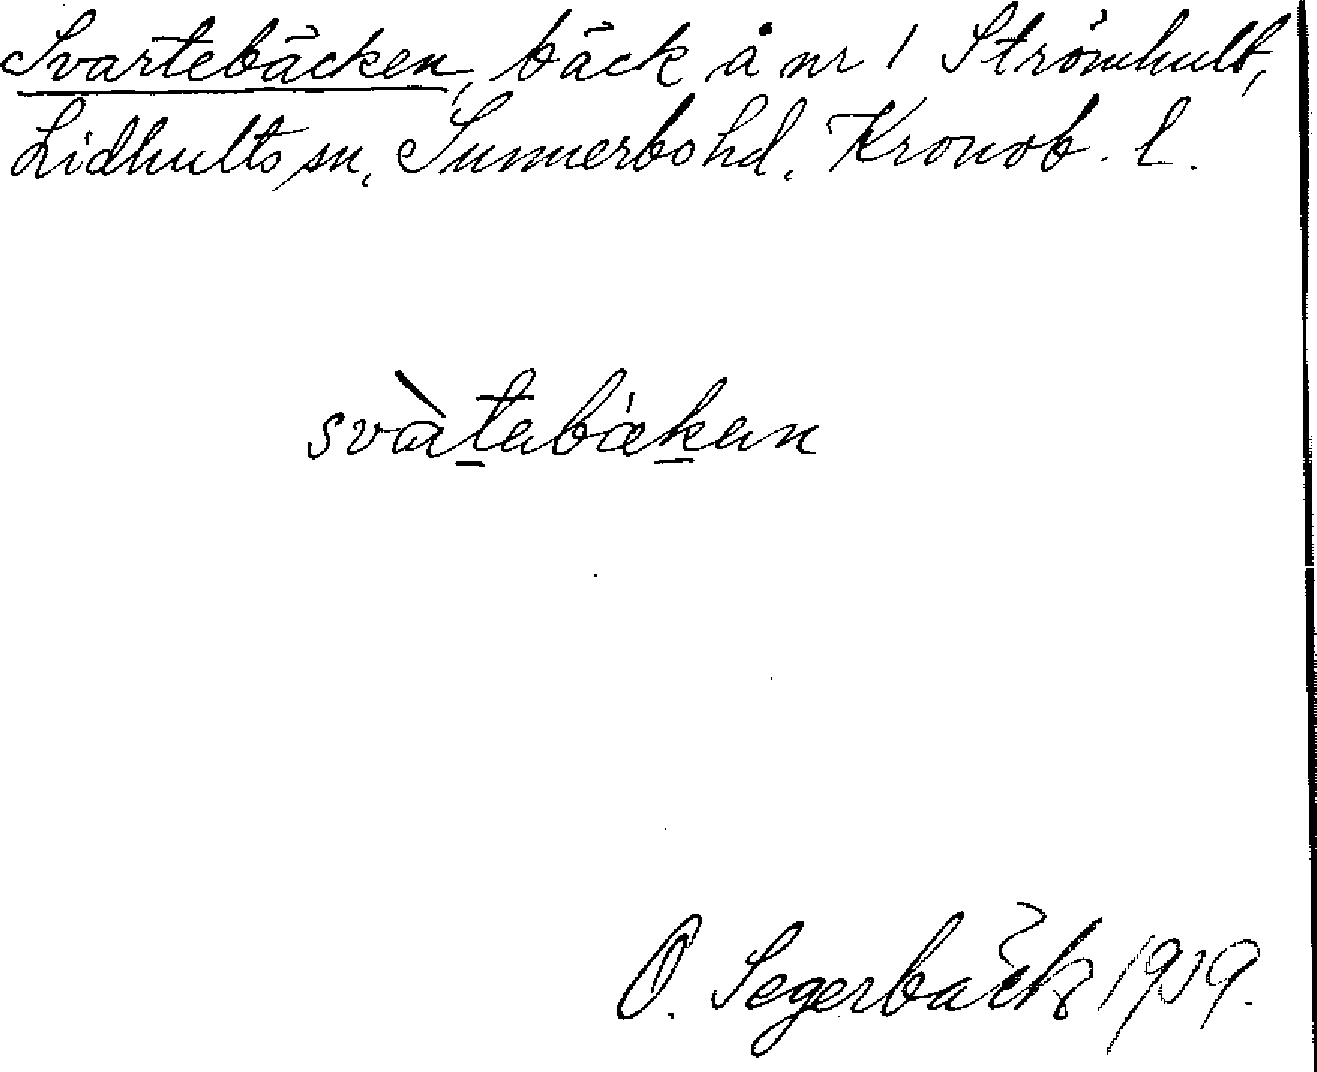 Svartebäcken, bäck å nr 1 Strömhult,
Lidhults sn, Sunnerbo hd, Kronob. l.
svàtabækan
O. Segerbäck 1919.